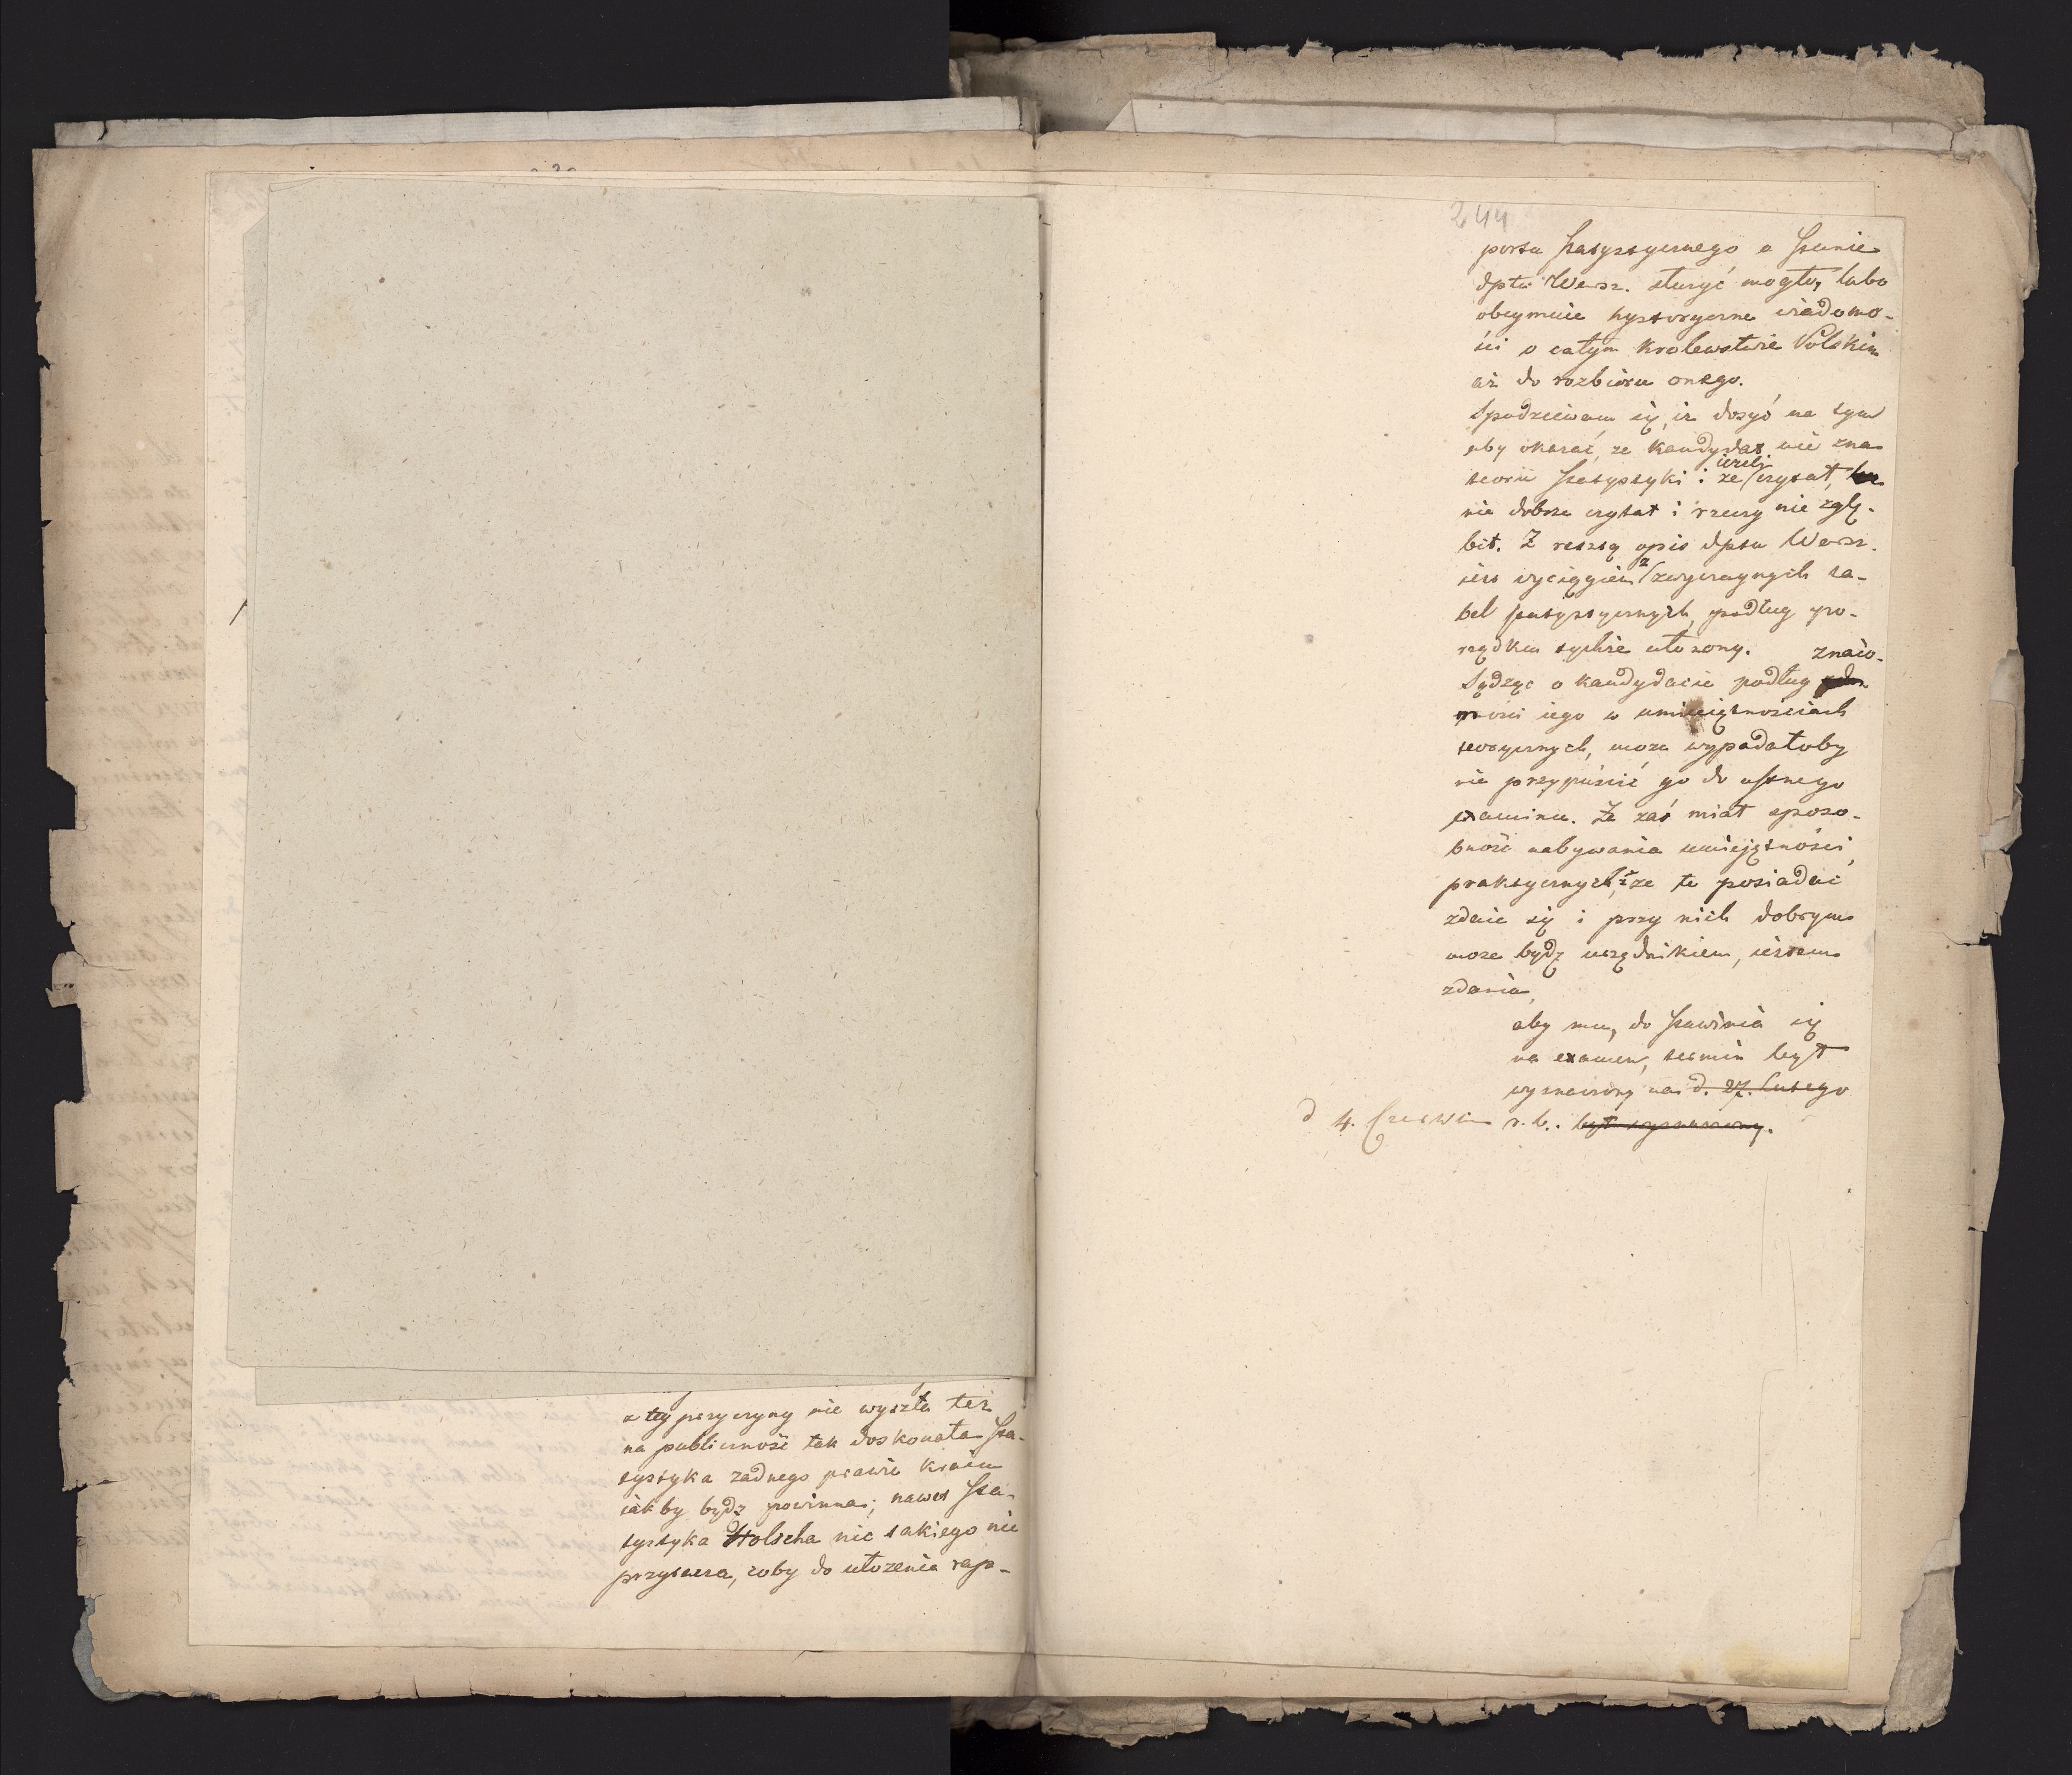 z tey przyczyny nie wyszła też
na publiczność tak doskonała sta-
tystyka żadnego prawie kraiu
iakby bydź powinna; nawet sta-
tystyka Holscha nic takiego nie
przytacza, coby do ułożenia rap-
244
portu statystycznego o stanie
dptu Warsz. służyć mogło, lubo
obeymuie hystoryczne wiadomo-
ści o całym Krolewstwie Polskim
aż do rozbioru onego.
Spodziewam się, iż dosyć na tym
aby okazać, że kandydat nie zna
teorii statystyki i że ieżeli czytał,
nie dobrze czytał i rzeczy nie zglę-
bił. Z resztą opis dptu Warsz.
iest wyciągiem z zwyczaynych ta-
bel statystycznych, podług po-
rządku tychże ułożony.
Sądząc o kandydacie podług znaio-
mości iego w umieiętnościach
teorycznych, może wypadałoby
nie przypuścić go do ustnego
examinu. Że zaś miał sposo-
bność nabywania umiejętności
praktycznych, i że te posiadać
zdaie się i przy nich dobrym
może bydź urzędnikiem, iestem
zdania,
aby mu, do stawienia się
na examen, termin był
wyznaczony na d. 27. Lutego
d 4. Czerwca r. b. był wyznaczony.